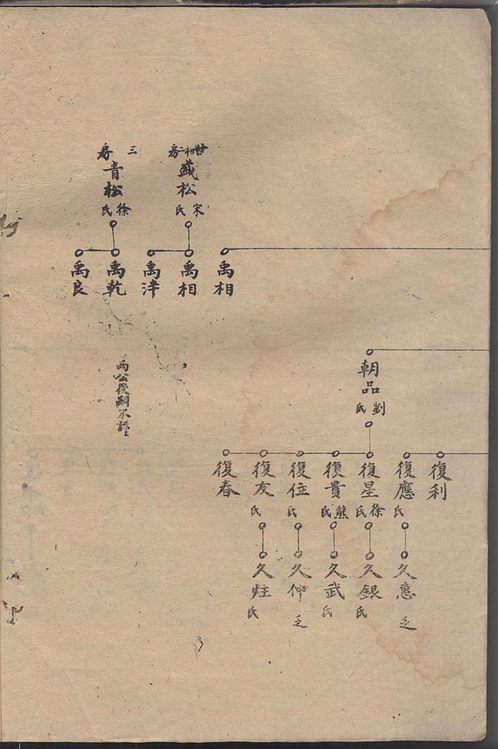 三房
青松
徐氏
盛松
宋氏
禹良
禹乾
禹相
禹相
兩公後嗣不詳
朝品
劉氏
復春
復友
氏
復位
氏
復貴
熊氏
復星
徐氏
復應
氏
復利
久
氏
久仲
乏
久武
氏
久銀
氏
久惠
乏